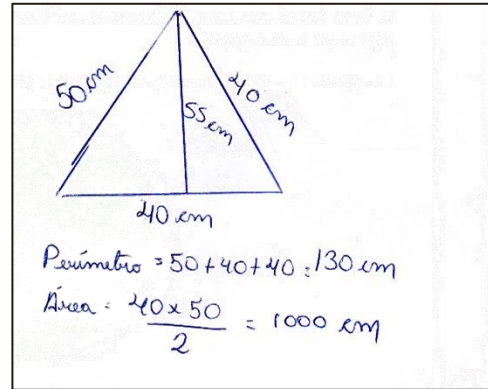 50 cm
40 cm
55 cm
40 cm
Perímetro = 50 + 40 + 40 = 130 cm
Área = 40 x 50 / 2 = 1000 cm